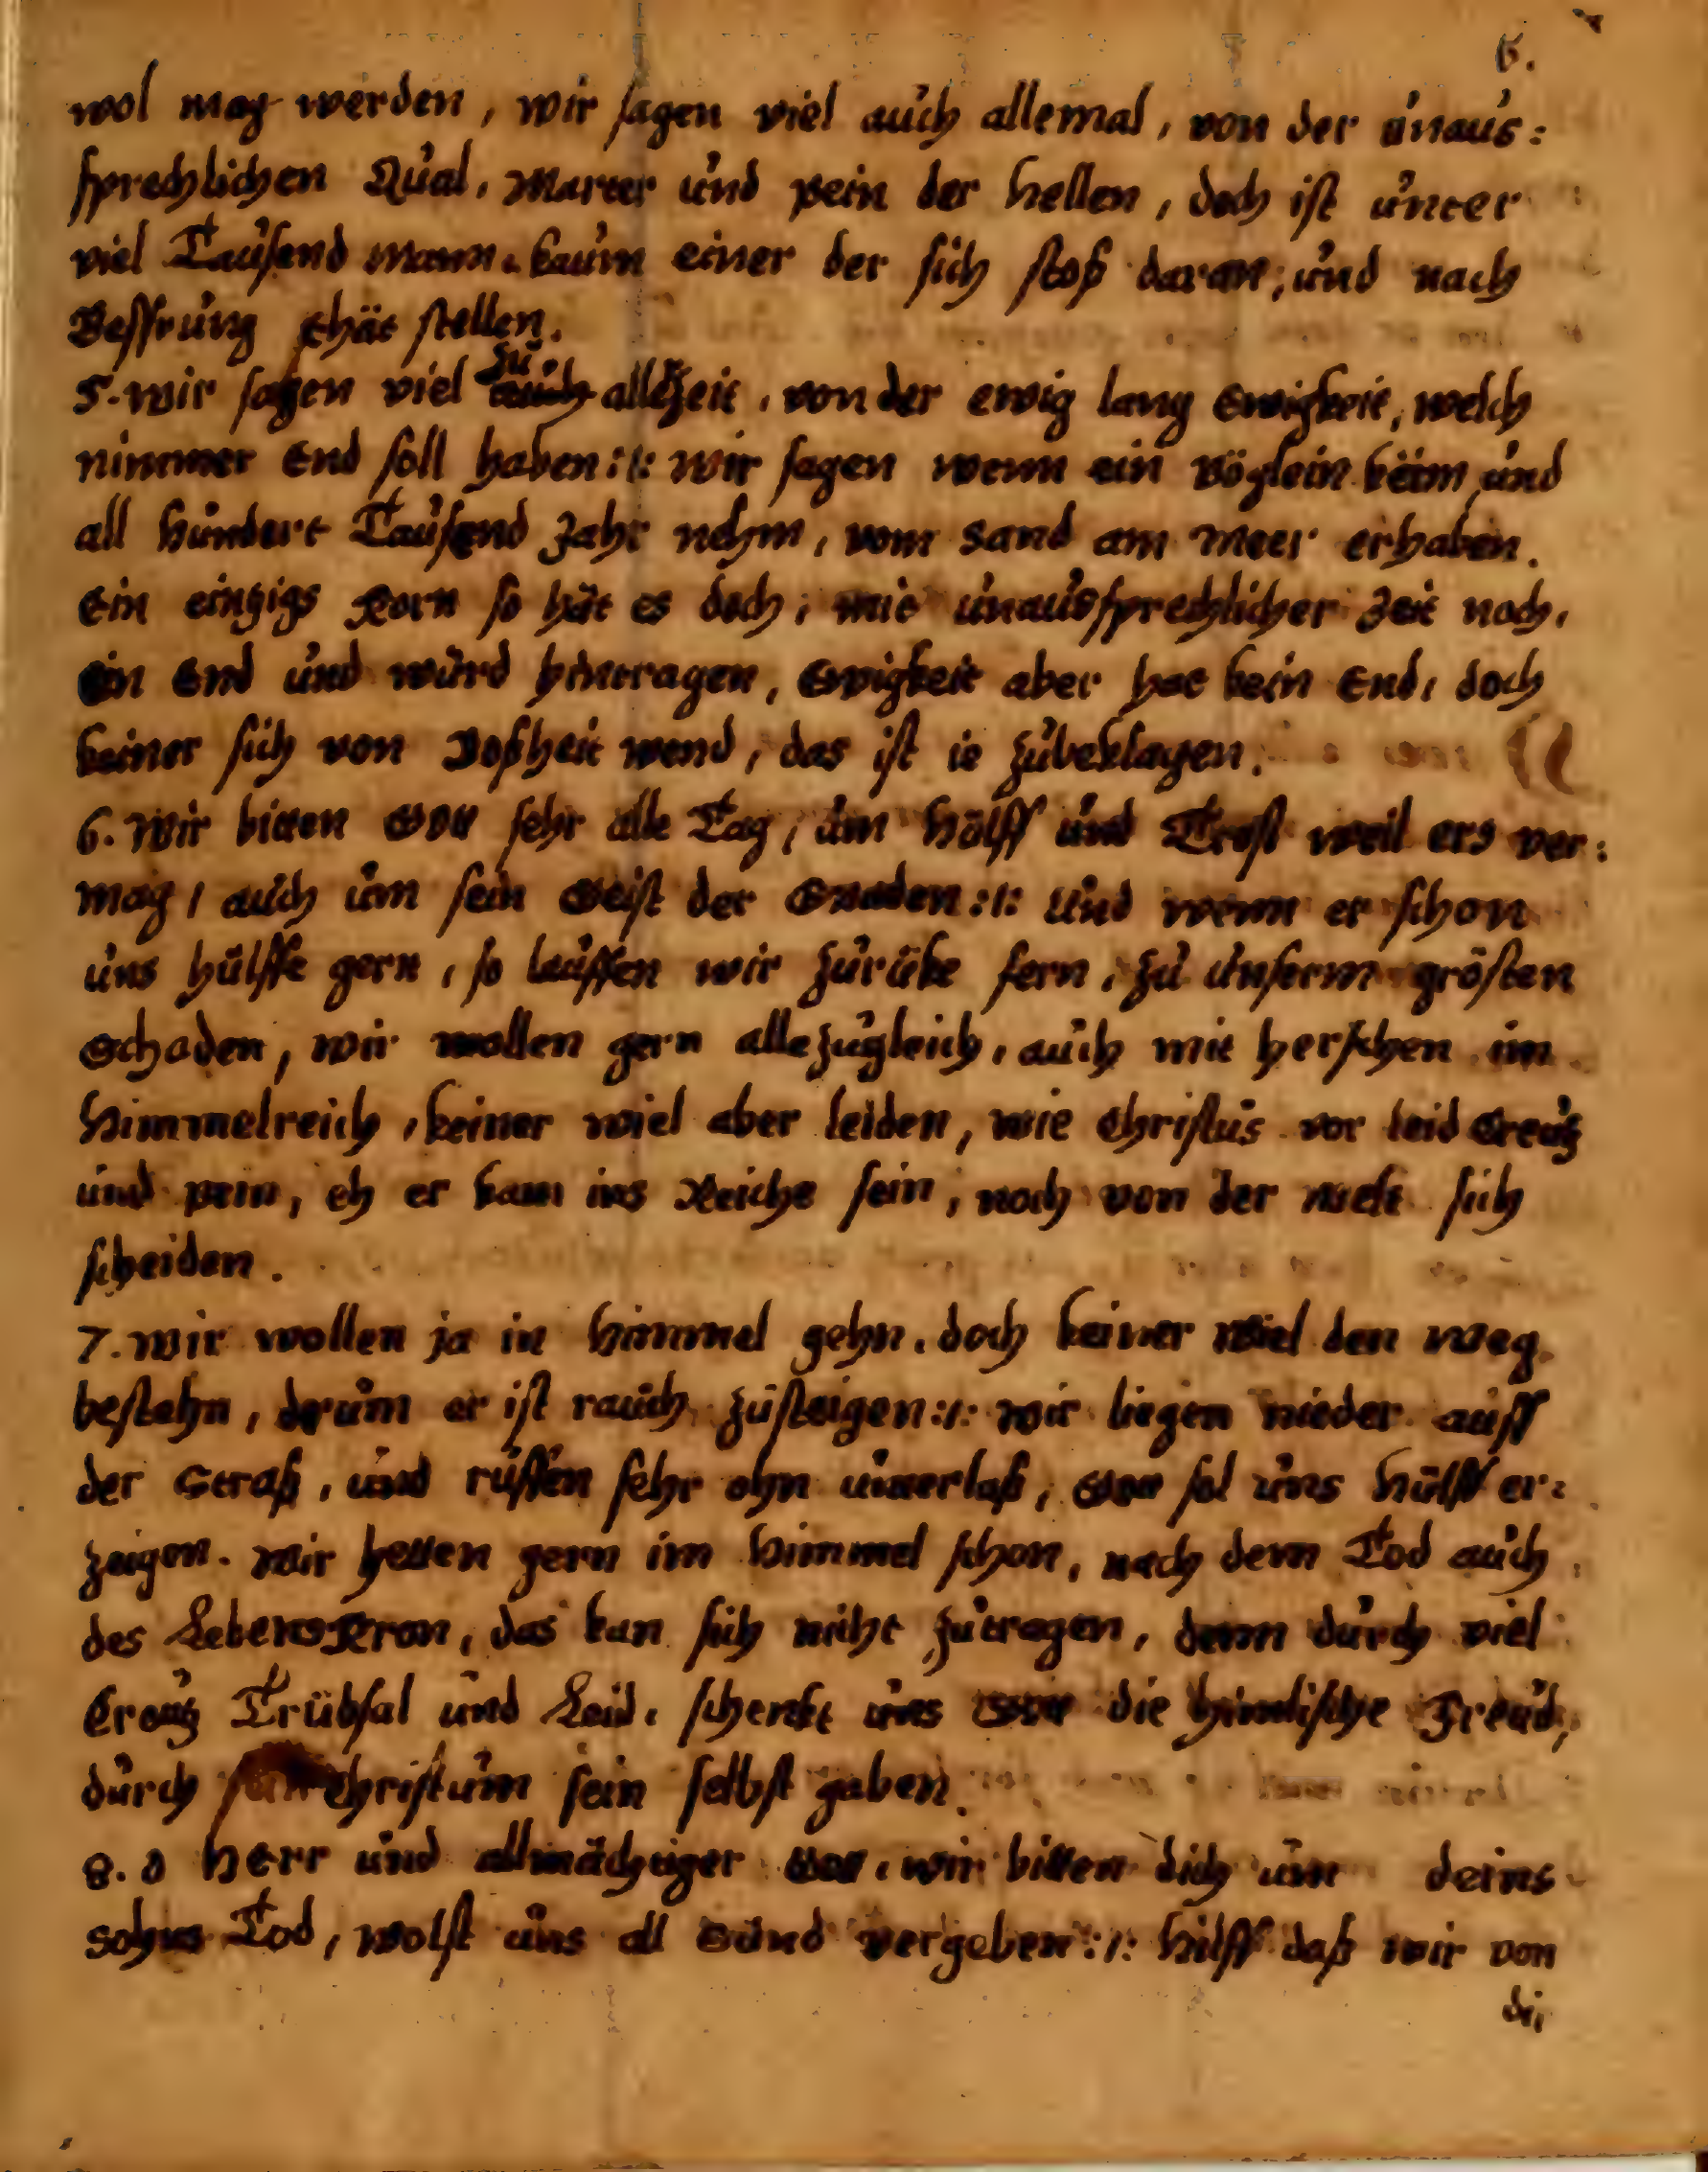 6.
wol mag werden, wir sagen viel auch allemal, von der unaus:
sprechlichen Qual, Marter und pein der hellen, doch ist unter
viel Tausend mann, kaum einer der sich stoß daran, und nach
Bessrung thät stellen.
5. wir sagen viel auch zu allezeit, von der ewig lang Ewigkeit, welch
nimmer End soll haben :/: wir sagen wenn ein vöglein käm, und
all hundert Tausend Jahr nehm, vom Sand am Meer erhaben.
Ein eintzigs Korn so hät es doch, mit unaussprechlicher Zeit noch,
ein End und würd hintragen, Ewigkeit aber hat kein End, doch
keiner sich von Boßheit wend, das ist ie zubeklagen.
6. Wir bitten Gott sehr alle Tag, um hülff und Trost weil ers ver:
mag, auch um sein Geist der Gnaden :/: Und wenn er schon
uns hülffe gern, so lauffen wir zurüke fern, zu unserm grösten
Schaden, wir wollen gern alle zugleich, auch mit herschen im
himmelreich, keiner wiel aber leiden, wie Christus vor leid Creutz
und pein, eh er kam ins Reiche sein, noch von der welt sich
scheiden.
7. wir wollen ja in himmel gehn, doch keiner wiel den weg
bestehn, drum er ist rauch zusteigen :/: wir liegen nieder auff
der Straß, und ruffen sehr ohn unterlaß, Gott sol uns hülff er:
zeigen. Wir hetten gern im himmel schon, nach dem Tod auch
des Lebens Kron, das kan sich nicht zutragen, denn durch viel
Creutz Trübsal und Leid, schenkt uns Gott die himlische Freud,
durch Christum sein selbst gaben.
8. O HErr und allmächtiger Gott, wir bitten dich um deins
Sohns Tod, wolst uns all Sünd vergeben :/: hilff daß wir von
di,